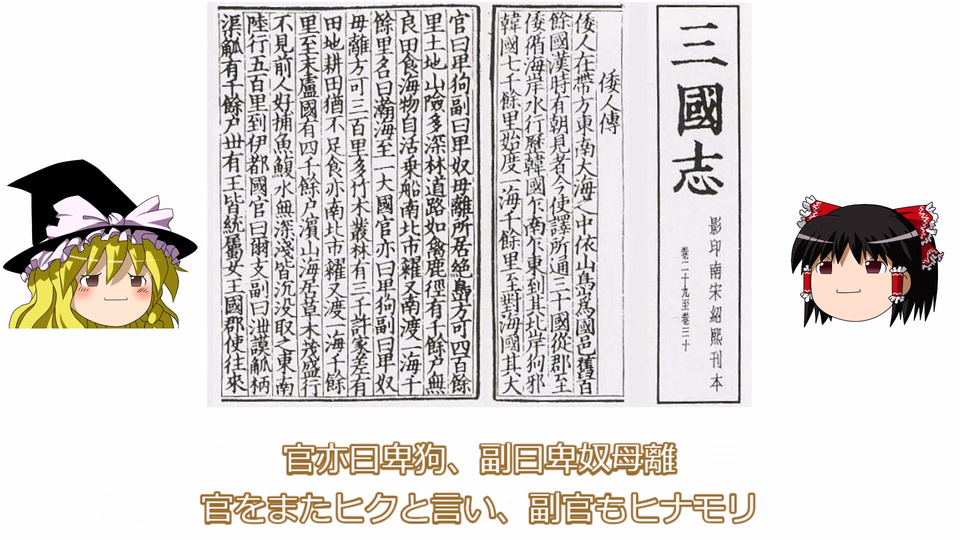 三國志
影印南宋紹熙刊本
卷二十九至卷三十
倭人傳
倭人在帶方東南大海之中依山島爲國邑舊百
餘國漢時有朝見者今使譯所通三十國從郡至
倭循海岸水行歷韓國乍南乍東到其北岸狗邪
韓國七千餘里始度一海千餘里至對海國其大
官曰卑狗副曰卑奴毋離所居絶島方可四百餘
里土地山險多深林道路如禽鹿徑有千餘戶無
良田食海物自活乗船南北市糴又南渡一海千
餘里名曰瀚海至一大國官亦曰卑狗副曰卑奴
毋離方可三百里多竹木叢林有三千許家差有
田地耕田猶不足食亦南北市糴又度一海千餘
里至末盧國有四千餘戶濱山海居草木茂盛行
不見前人好捕魚鰒水無深淺皆沉没取之東南
陸行五百里到伊都國官曰爾支副曰泄謨觚柄
渠觚有千餘戶丗有王皆統屬女王國郡使往來
官亦日卑狗、副日卑奴母離
官をまたヒクと言い、副官もヒナモリ